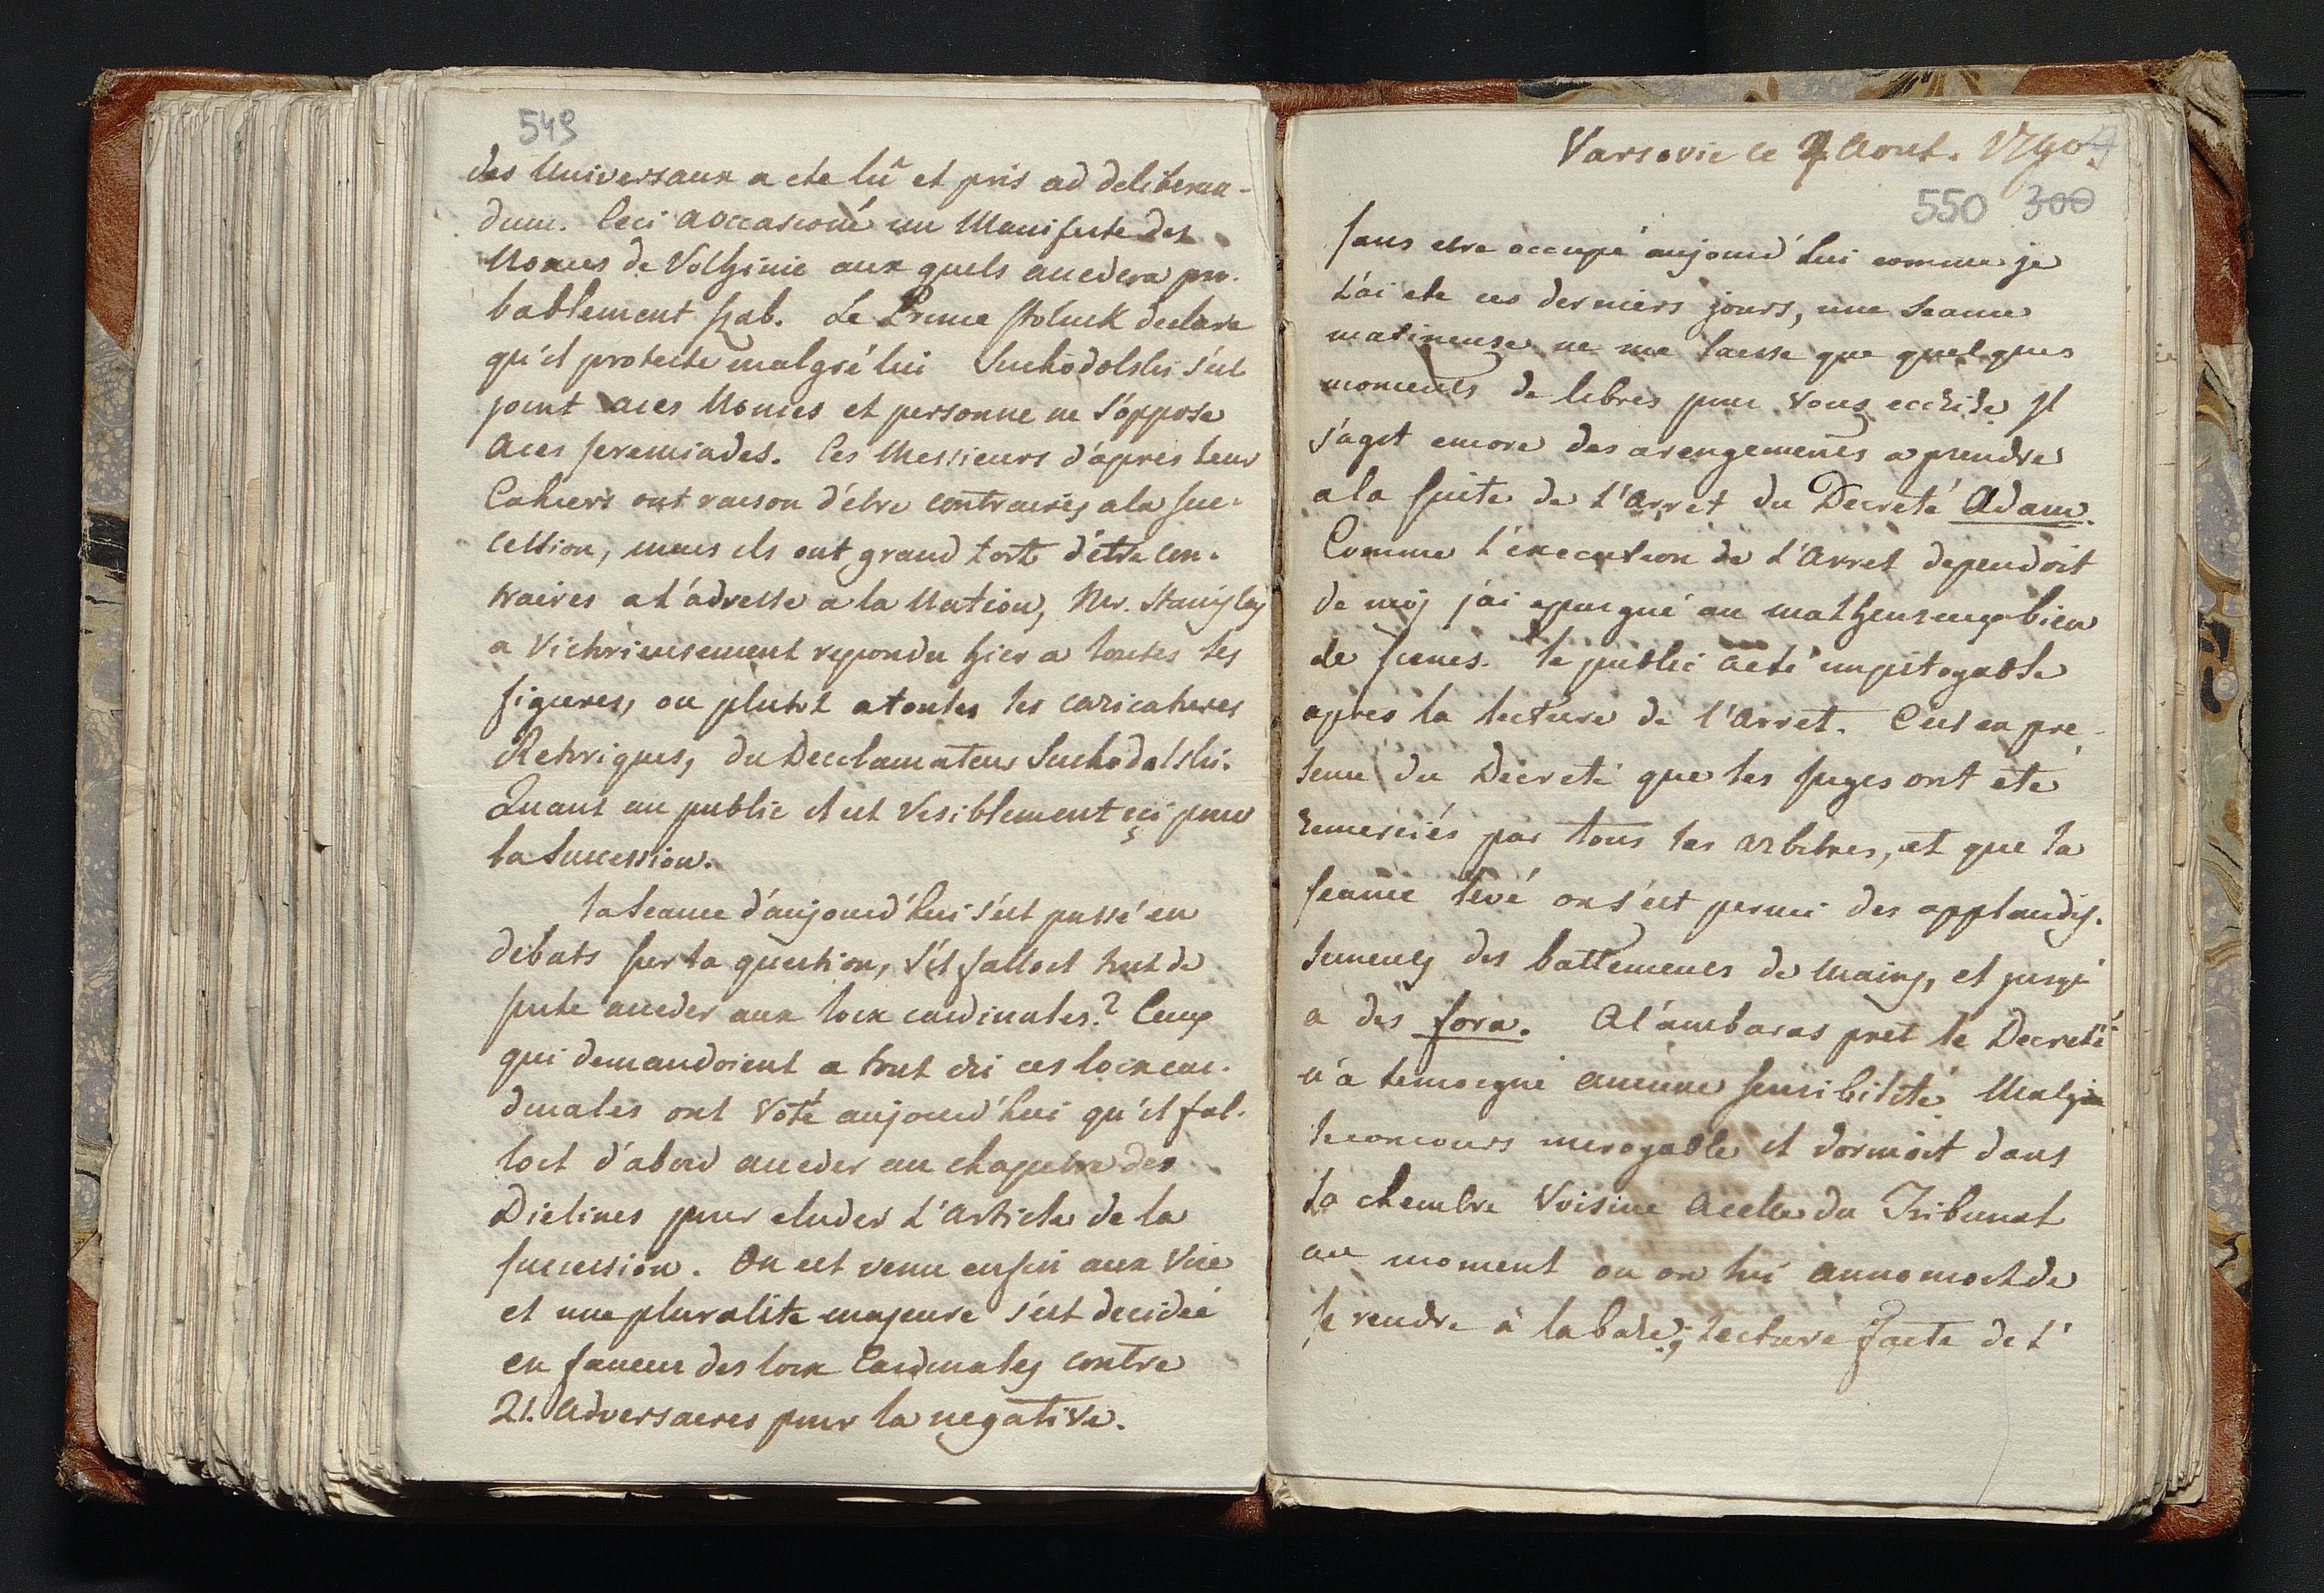 549
des Universaux a ete lû et pris ad deliberan-
dum. Ceci a occasioné un Manifeste des
Nonces de Volhinie aux quels accedera pro-
bablement hab. Le Prince declare
qu'il proteste malgré lui Suchodolski s'est
joint a ces Nonces et personne ne s'oppose
a ces jeremiades. Ces Messieurs d'apres leur
Cahiers ont raison d'être contraires a la suc-
cession, mais ils ont grand tort d'être con-
traires a l'adresse a la Nation, Mr. Stanislas
a Victrieusement repondu hier a toutes les
figures, ou plutot a toutes les caricatures
Retoriques, du Declamateur Suchodolski.
Quant au public il est Visiblement ici pour
la Succession.
la Seance d'aujourd'hui s'est passé en
debats sur la question, s'il falloit tout de
suite acceder aux loix cardinales? Ceux
qui demandoient a tout cri ces loix car-
dinales ont Voté aujourd'hui qu'il fal-
loit d'abord acceder au chapitre des
Dietines pour eluder l'Article de la
succession. On est venu enfin aux Voix
et une pluralite majeure s'est decideé
en faveur des loix Cardinales contre
21. Adversaires pour la negative.
Varsovie le 4 Aout. 1790.
550 300
sans etre occupé aujourd'hui comme je
l'ai ete ces derniers jours, une Seance
matineuse ne me laisse que quelques
moments de libres pour vous ecrire. Il
s'agit encore des arengements a prendre
a la suite de l'Arret du Decreté Adam.
Comme l'execution de l'Arret dependoit
de moi j'ai epargné au malheureux bien
de scenes. le public a eté impitoyable
apres la lecture de l'Arret. C'est en pre-
sence du Decreté que les juges ont eté
remerciés par tous les arbitres, et que la
seance levé on s'est permi des applaudis-
sements des battements de Mains, et jusqu'
a des fora. A l'ambaras pret le Decreté
n'a temoigné aucune sensibilité Malgré
le concours incroyable il dormoit dans
la chembre Voisine a celle du Tribunal
au moment ou on lui annonçoit de
se rendre à la bare; Lecture faite de l'